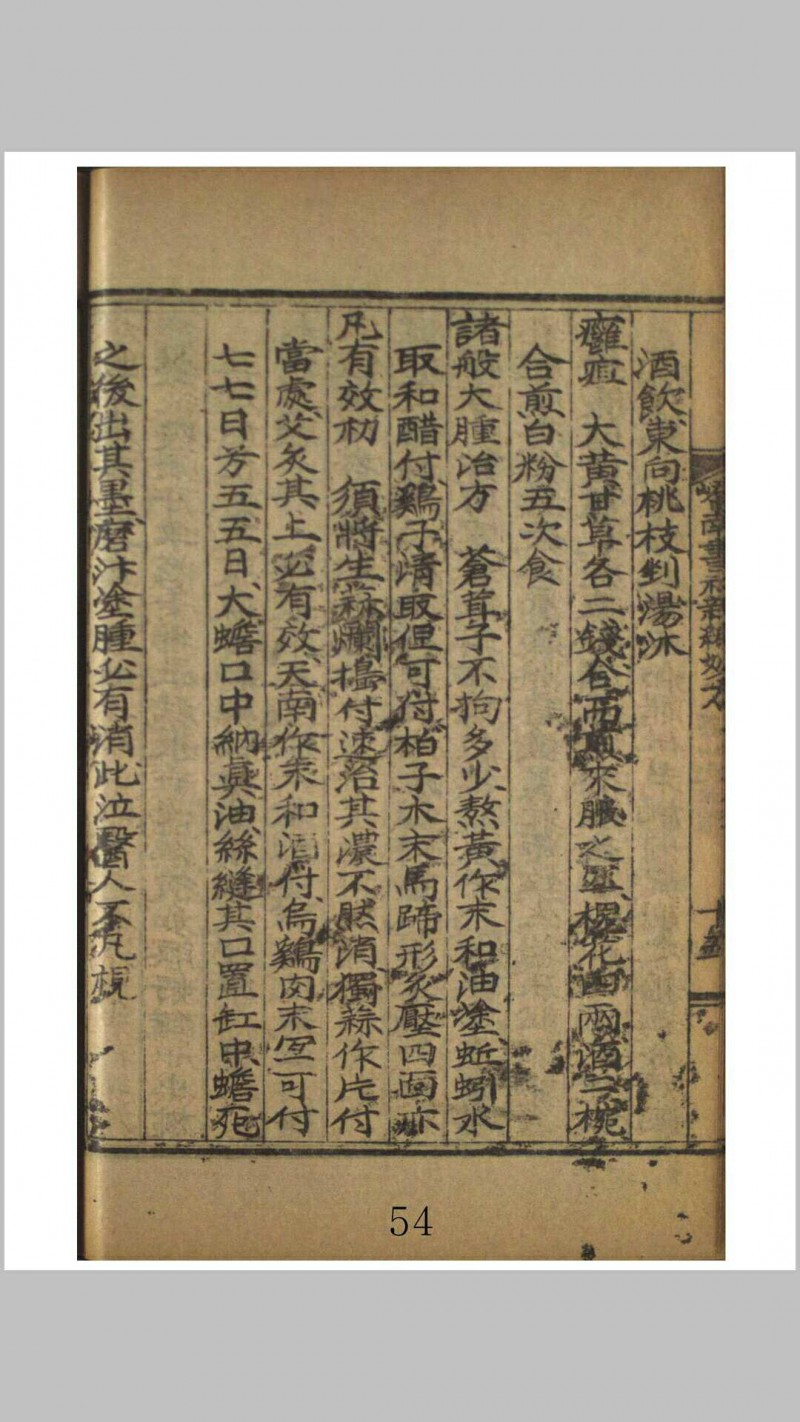 酒飮東向桃枝剉湯沐
癰疽 大黃甘草各二錢合而煎末服之 花四兩酒三椀
合煎白粉五次食
諸般大腫治方 蒼茸子不拘多少熬黃作末和油塗蚯蚓水
取和醋付鷄子淸取但可付柏子木末馬蹄形灸壓四面亦
凡有效 須將生蒜爛搗付速治其濃不膿消獨蒜作片付
當處艾灸其上必有效天南作末和酒付烏鷄肉末 可付
七七日 五五日大蟾口中納眞油絲縫其口置缸中蟾死
之後出其墨磨汁塗腫必有消此泣醫人不凡
書社新編 方
十五
54